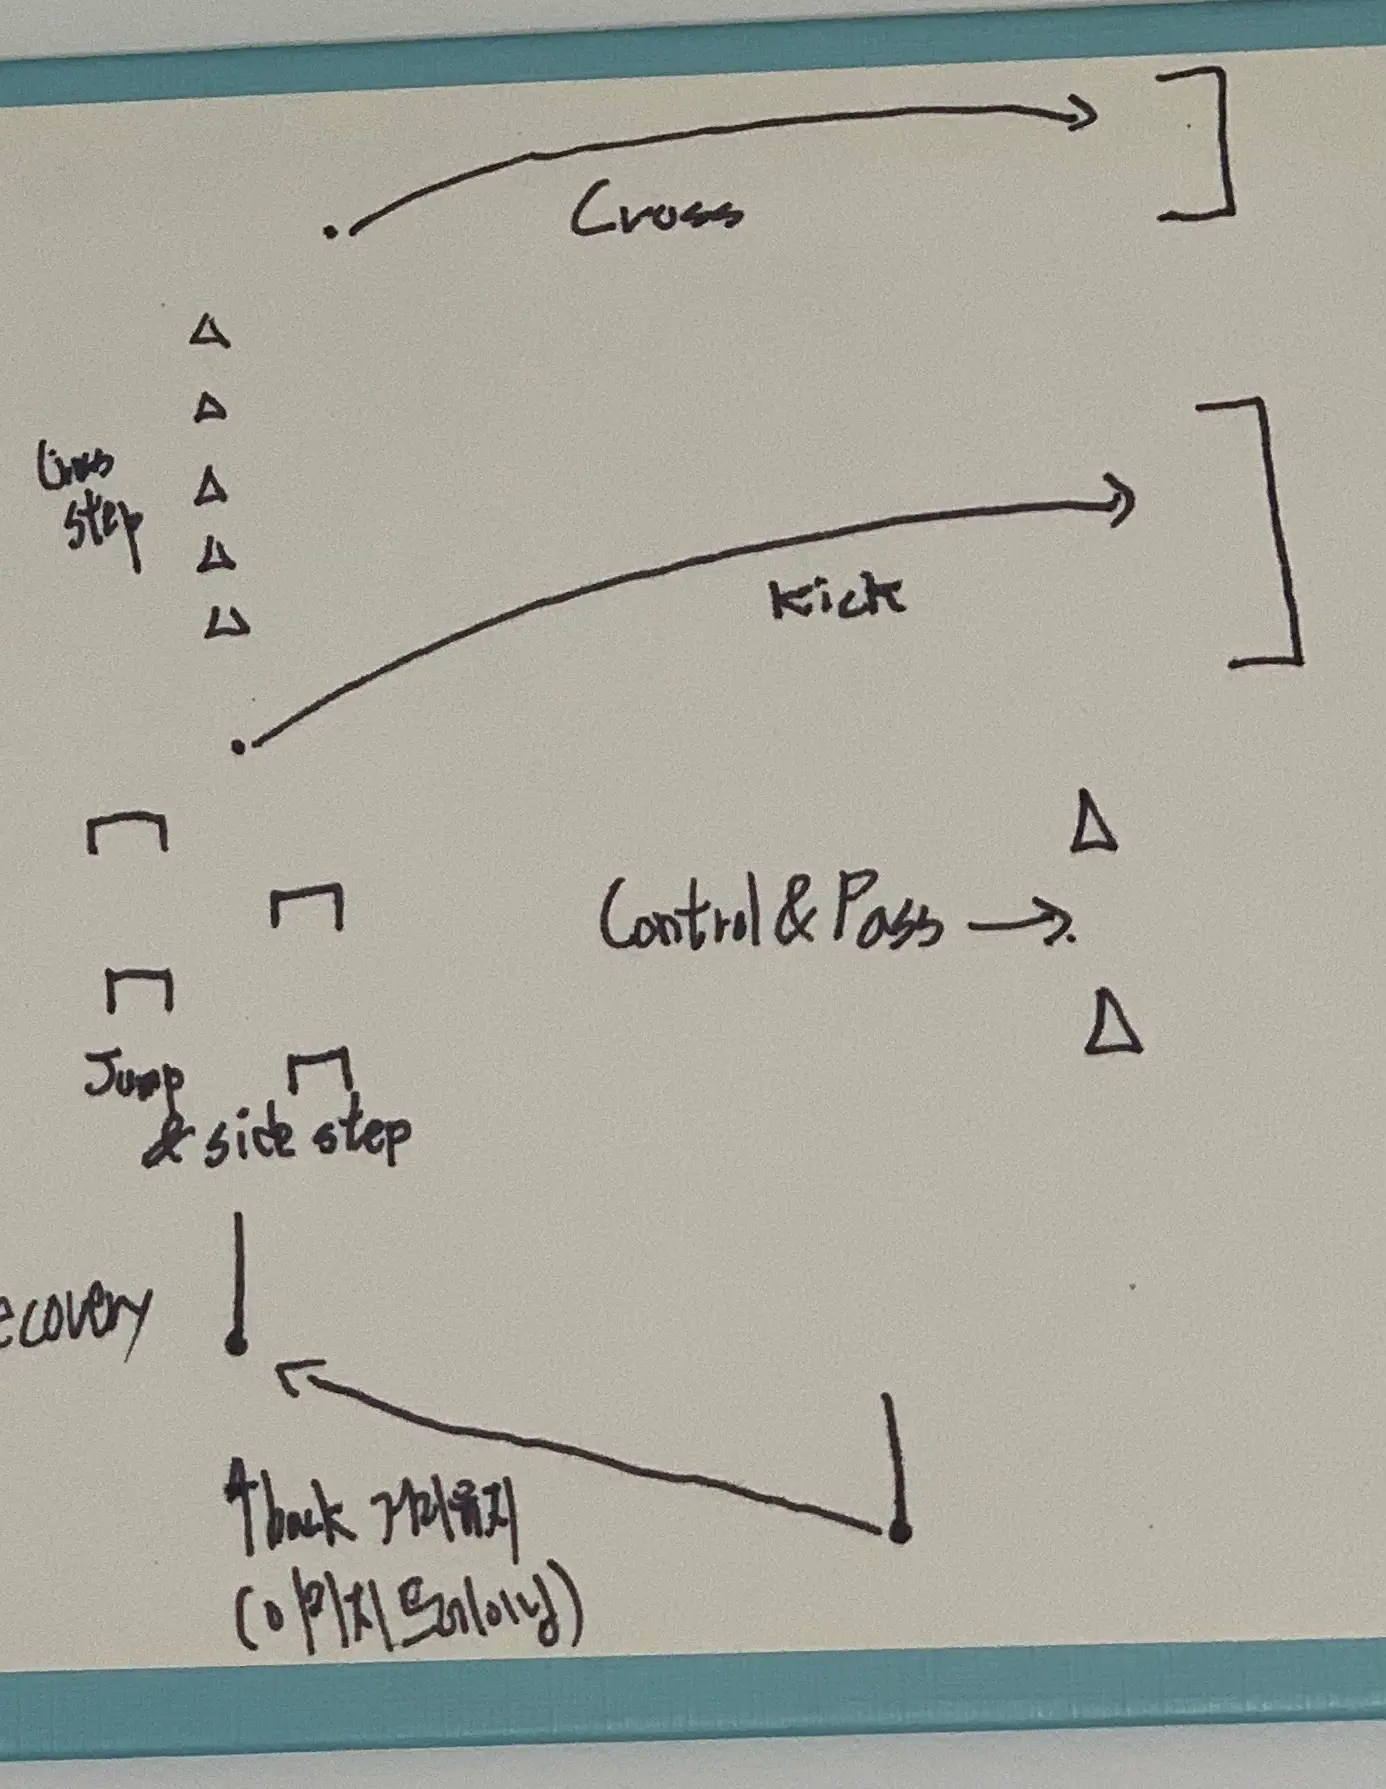 Cross
Cross
step
Kick
Control & Pass →
Jump
& side step
ecovery
↑back 거리유지
(이미지트레이닝)